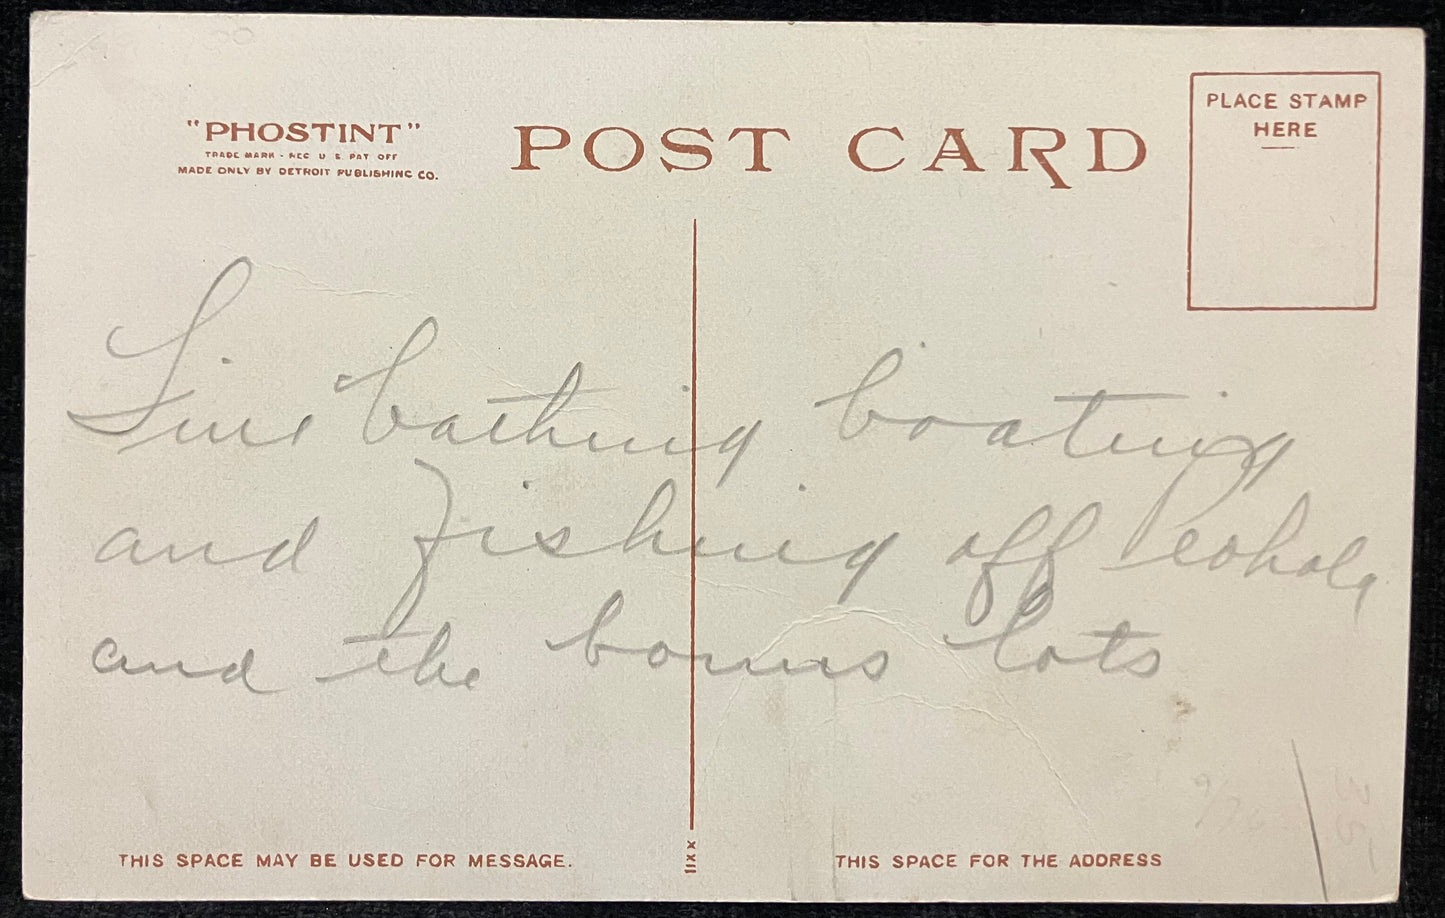 "PHOSTINT"
TRADE MARK - REG U S PAT OFF
MADE ONLY BY DETROIT PUBLISHING CO.
POST CARD
PLACE STAMP
HERE
Fine bathing boating
and fishing off
and the lots
THIS SPACE MAY BE USED FOR MESSAGE.
XXII
THIS SPACE FOR THE ADDRESS
35